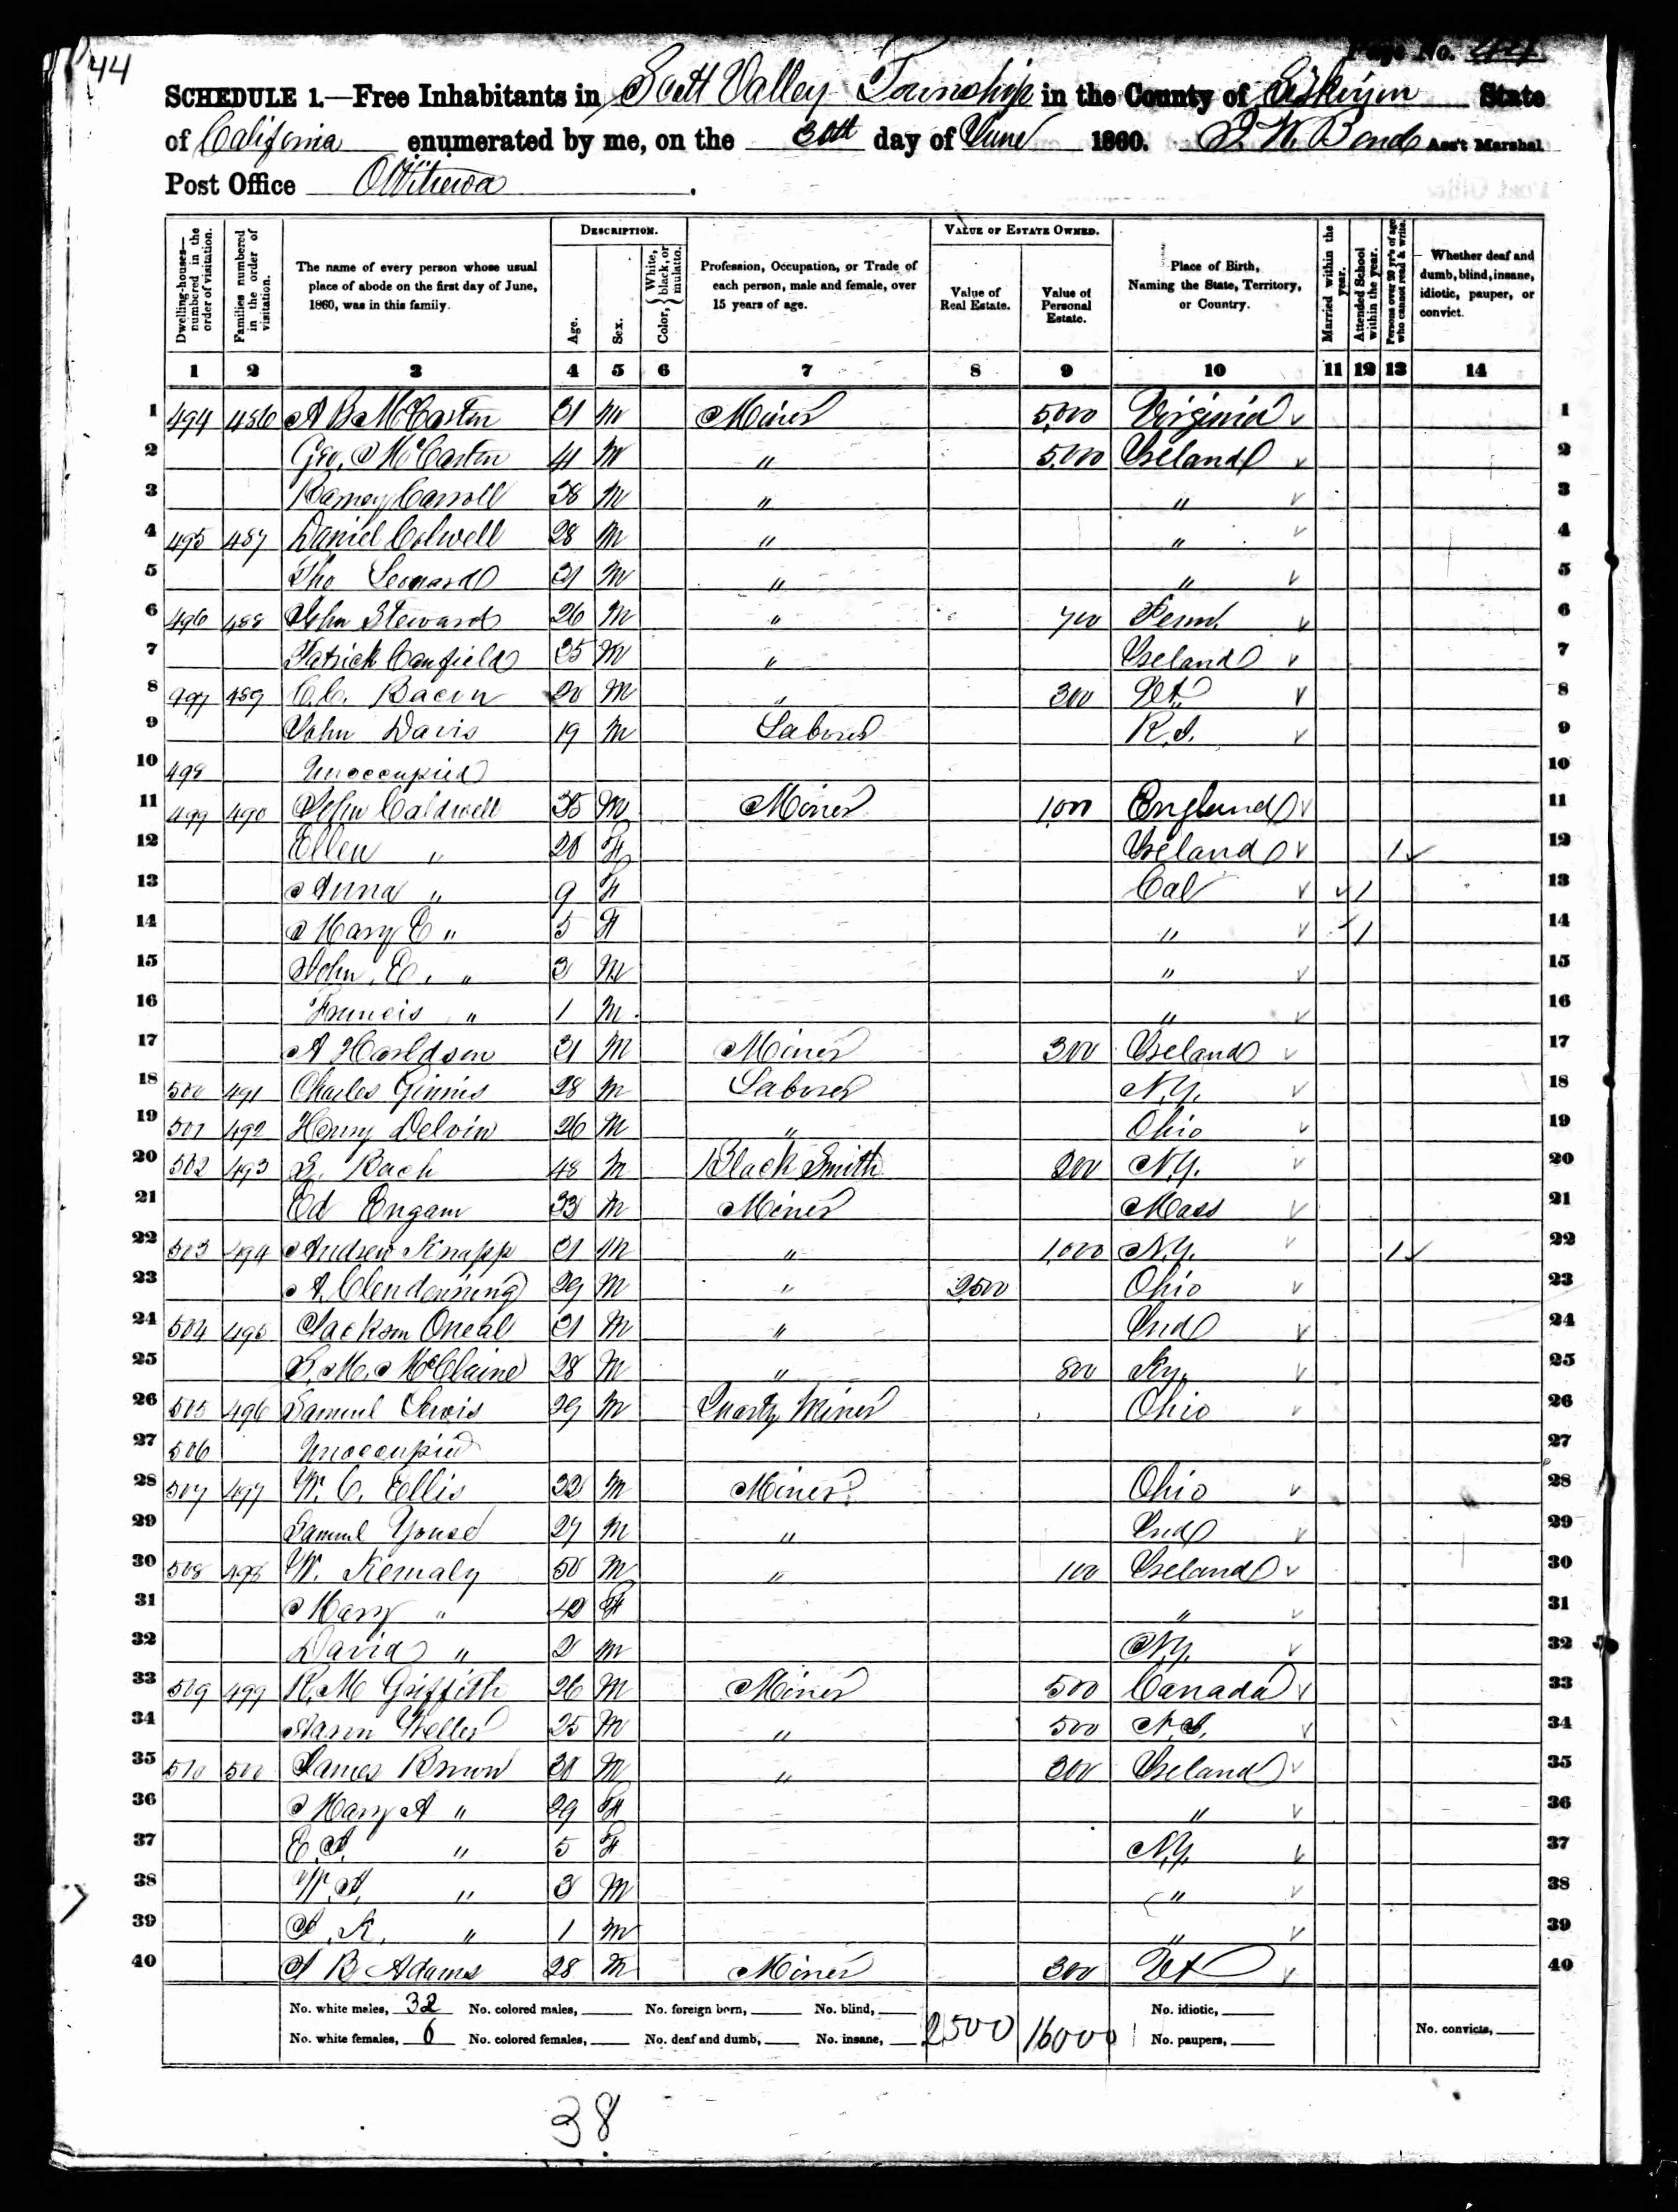 44
Page No. 44
SCHEDULE 1.—Free Inhabitants in Scott Valley Township in the County of Siskiyou State
of California enumerated by me, on the 30th day of June 1860. Bond Ass't Marshal
Post Office
DESCRIPTION. VALUE OF ESTATE OWNED.
Dwelling-houses—numbered in the order of visitation. Families numbered in the order of visitation. The name of every person whose usual place of abode on the first day of June, 1860, was in this family. Age. Sex. Color, { White, black, or mulatto. Profession, Occupation, or Trade of each person, male and female, over 15 years of age. Value of Real Estate. Value of Personal Estate. Place of Birth, Naming the State, Territory, or Country. Married within the year. Attended School within the year. Persons over 20 y'rs of age who cannot read & write. Whether deaf and dumb, blind, insane, idiotic, pauper, or convict.
1 2 3 4 5 6 7 8 9 10 11 12 13 14
1 494 486 A B McCastin 31 M Miner 5,000 Virginia 1
2 Geo. McCastin 41 M " 5,000 Ireland 2
3 Barney Carroll 38 M " " 3
4 495 487 Daniel Colwell 28 M " " 4
5 Tho Leonard 31 M " " 5
6 496 488 John Steward 26 M " 700 Penn. 6
7 Patrick Canfield 35 M " Ireland 7
8 497 489 C.C. Bacon 20 M " 300 Vt. 8
9 John Davis 19 M Laborer R.I. 9
10 498 Unoccupied 10
11 499 490 John Caldwell 35 M Miner 1,000 England 11
12 Ellen " F Ireland 1 12
13 Anna " 9 F Cal 1 13
14 Mary E " 5 F " 1 14
15 John. E. " 3 M " 15
16 Francis " 1 M " 16
17 A 31 M Miner 300 Ireland 17
18 500 491 Charles Ginnis 28 M Laborer N.Y. 18
19 501 492 Henry Delvin 26 M " Ohio 19
20 502 493 Bach 48 M Black Smith N.Y. 20
21 Ed Engam 33 M Miner Mass 21
22 503 494 Andrew Knapp 31 M " 1,000 N.Y. 1 22
23 A. Clendenning 29 M " 2500 Ohio 23
24 504 495 Jackson Oneal 31 M " Ind 24
25 S. M. McClaine 28 M " 800 Ky. 25
26 505 496 Samuel Lewis 29 M Quartz Miner Ohio 26
27 506 Unoccupied 27
28 507 497 W. C. Ellis 32 M Miner Ohio 28
29 Samuel Youse 27 M " Ind 29
30 508 498 W. Kemaly 50 M " 100 Ireland 30
31 Mary " F " 31
32 David " 2 M N.Y. 32
33 509 499 R. M Griffith 26 M Miner 500 Canada 33
34 Aaron Weller 25 M " 500 N.J. 34
35 510 500 James Brown 30 M " 300 Ireland 35
36 Mary A " 29 F " 36
37 E. A. " 5 F N.Y. 37
38 W. A. " 3 M " 38
39 K. " 1 M " 39
40 B. Adams 28 M Miner 300 Vt 40
No. white males, 32 No. colored males, No. foreign born, No. blind, No. idiotic,
No. white females, 6 No. colored females, No. deaf and dumb, No. insane, 2500 16000 No. paupers, No. convicts,
38